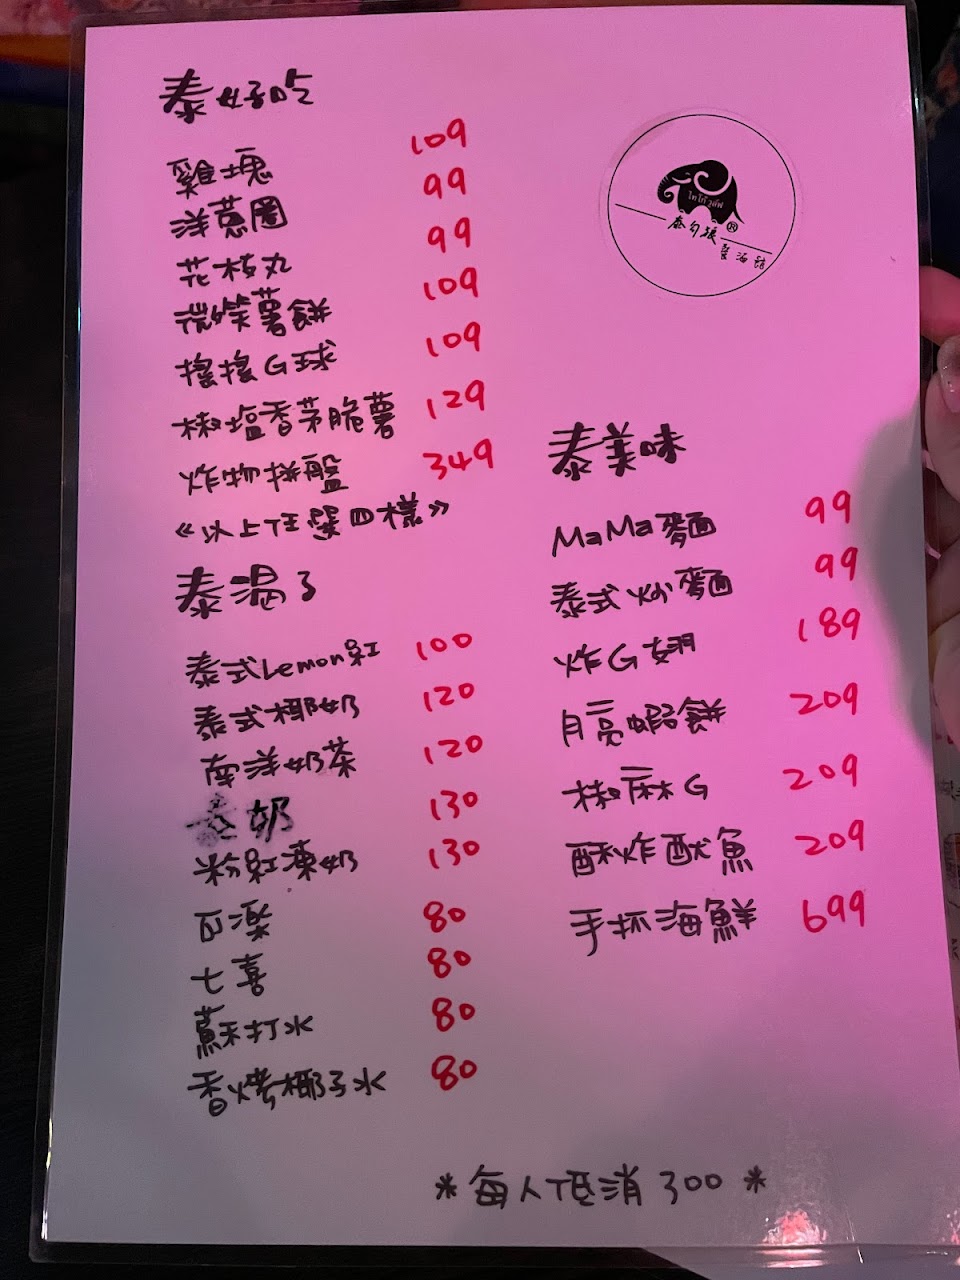 泰好吃
雞塊 109
洋蔥圈 99
花枝丸 99
微笑薯餅 109
搖搖G球 109
椒塩香茅脆薯 129
炸物拼盤 349
《以上任選四樣》
泰渴了
泰式Lemon紅 100
泰式椰奶 120
南洋奶茶 120
泰奶 130
粉紅凍奶 130
可楽 80
七喜 80
蘇打水 80
香烤椰子水 80
®
泰美味
MaMa麵 99
泰式炒麵 99
炸G翅 189
月亮蝦餅 209
椒麻G 209
酥炸魷魚 209
手抓海鮮 699
*每人低消 300 *